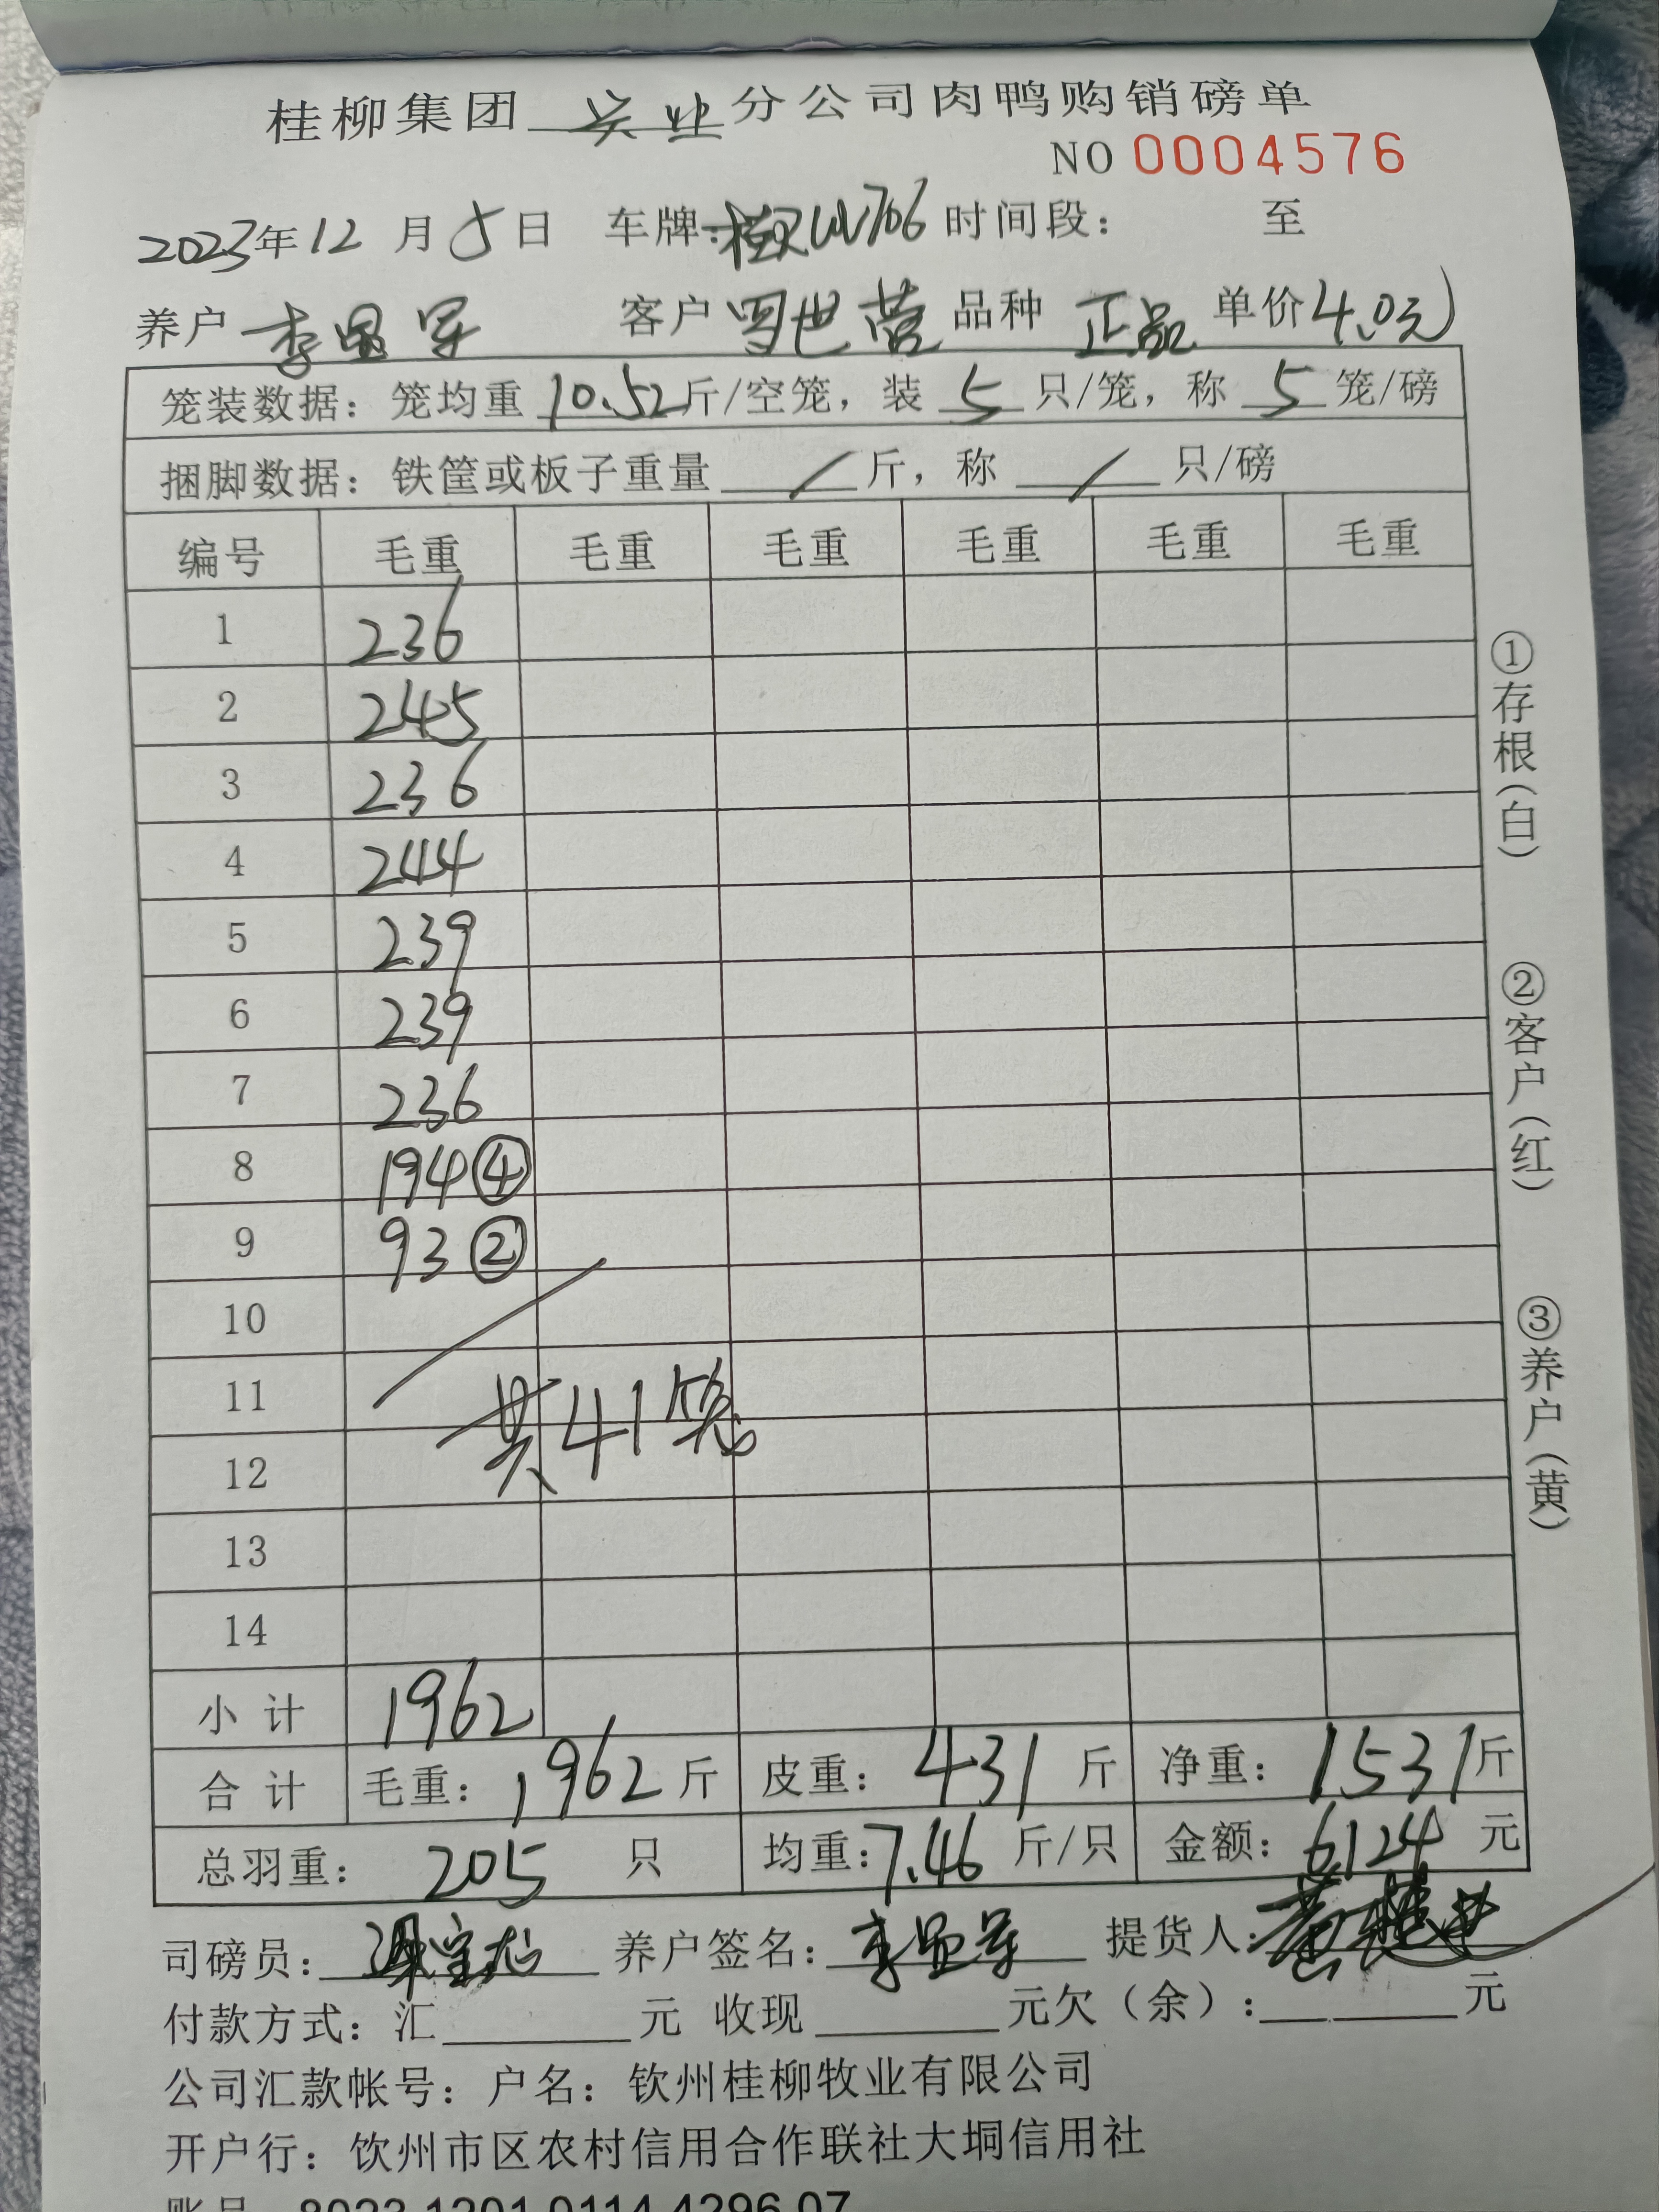 桂柳集团 兴业 分公司肉鸭购销磅单
NO 0004576
2023年 12 月 5 日 车牌: 706 时间段: 至
养户 李 军 客户 罗世营 品种 正品 单价 4.0元
笼装数据: 笼均重 10.52 斤/空笼, 装 5 只/笼, 称 5 笼/磅
捆脚数据: 铁筐或板子重量 / 斤, 称 / 只/磅
编号 毛重 毛重 毛重 毛重 毛重 毛重
1 236
2 245
3 236
4 244
5 239
6 239
7 236
8 194 ④
9 93 ②
10
11
共41笼
12
13
14
小 计 1962
合 计 毛重: 1962 斤 皮重: 431 斤 净重: 1531 斤
总羽重: 205 只 均重: 7.46 斤/只 金额: 6124 元
①存根(白)
②客户(红)
③养户(黄)
司磅员: 养户签名: 李 军 提货人:
付款方式: 汇 元 收现 元欠(余): 元
公司汇款帐号: 户名: 钦州桂柳牧业有限公司
开户行: 饮州市区农村信用合作联社大垌信用社
账号 8023 1201 0114 4296 07